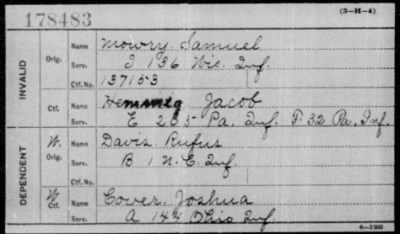 178483
(3-H-4)
INVALID
Orig. Name Mowry, Samuel
Serv. I 136 Wis. Inf.
Ctf. No. 137153
Ctf. Name Hemmeg Jacob
Serv. E 205 Pa. Inf. F. 32 Pa. Inf.
DEPENDENT
W. Orig. Name Davis Rufus
Serv. B 1 N.C. Inf.
Ctf. No.
W Ctf. Name Cover, Joshua
Serv. A 144 Ohio Inf